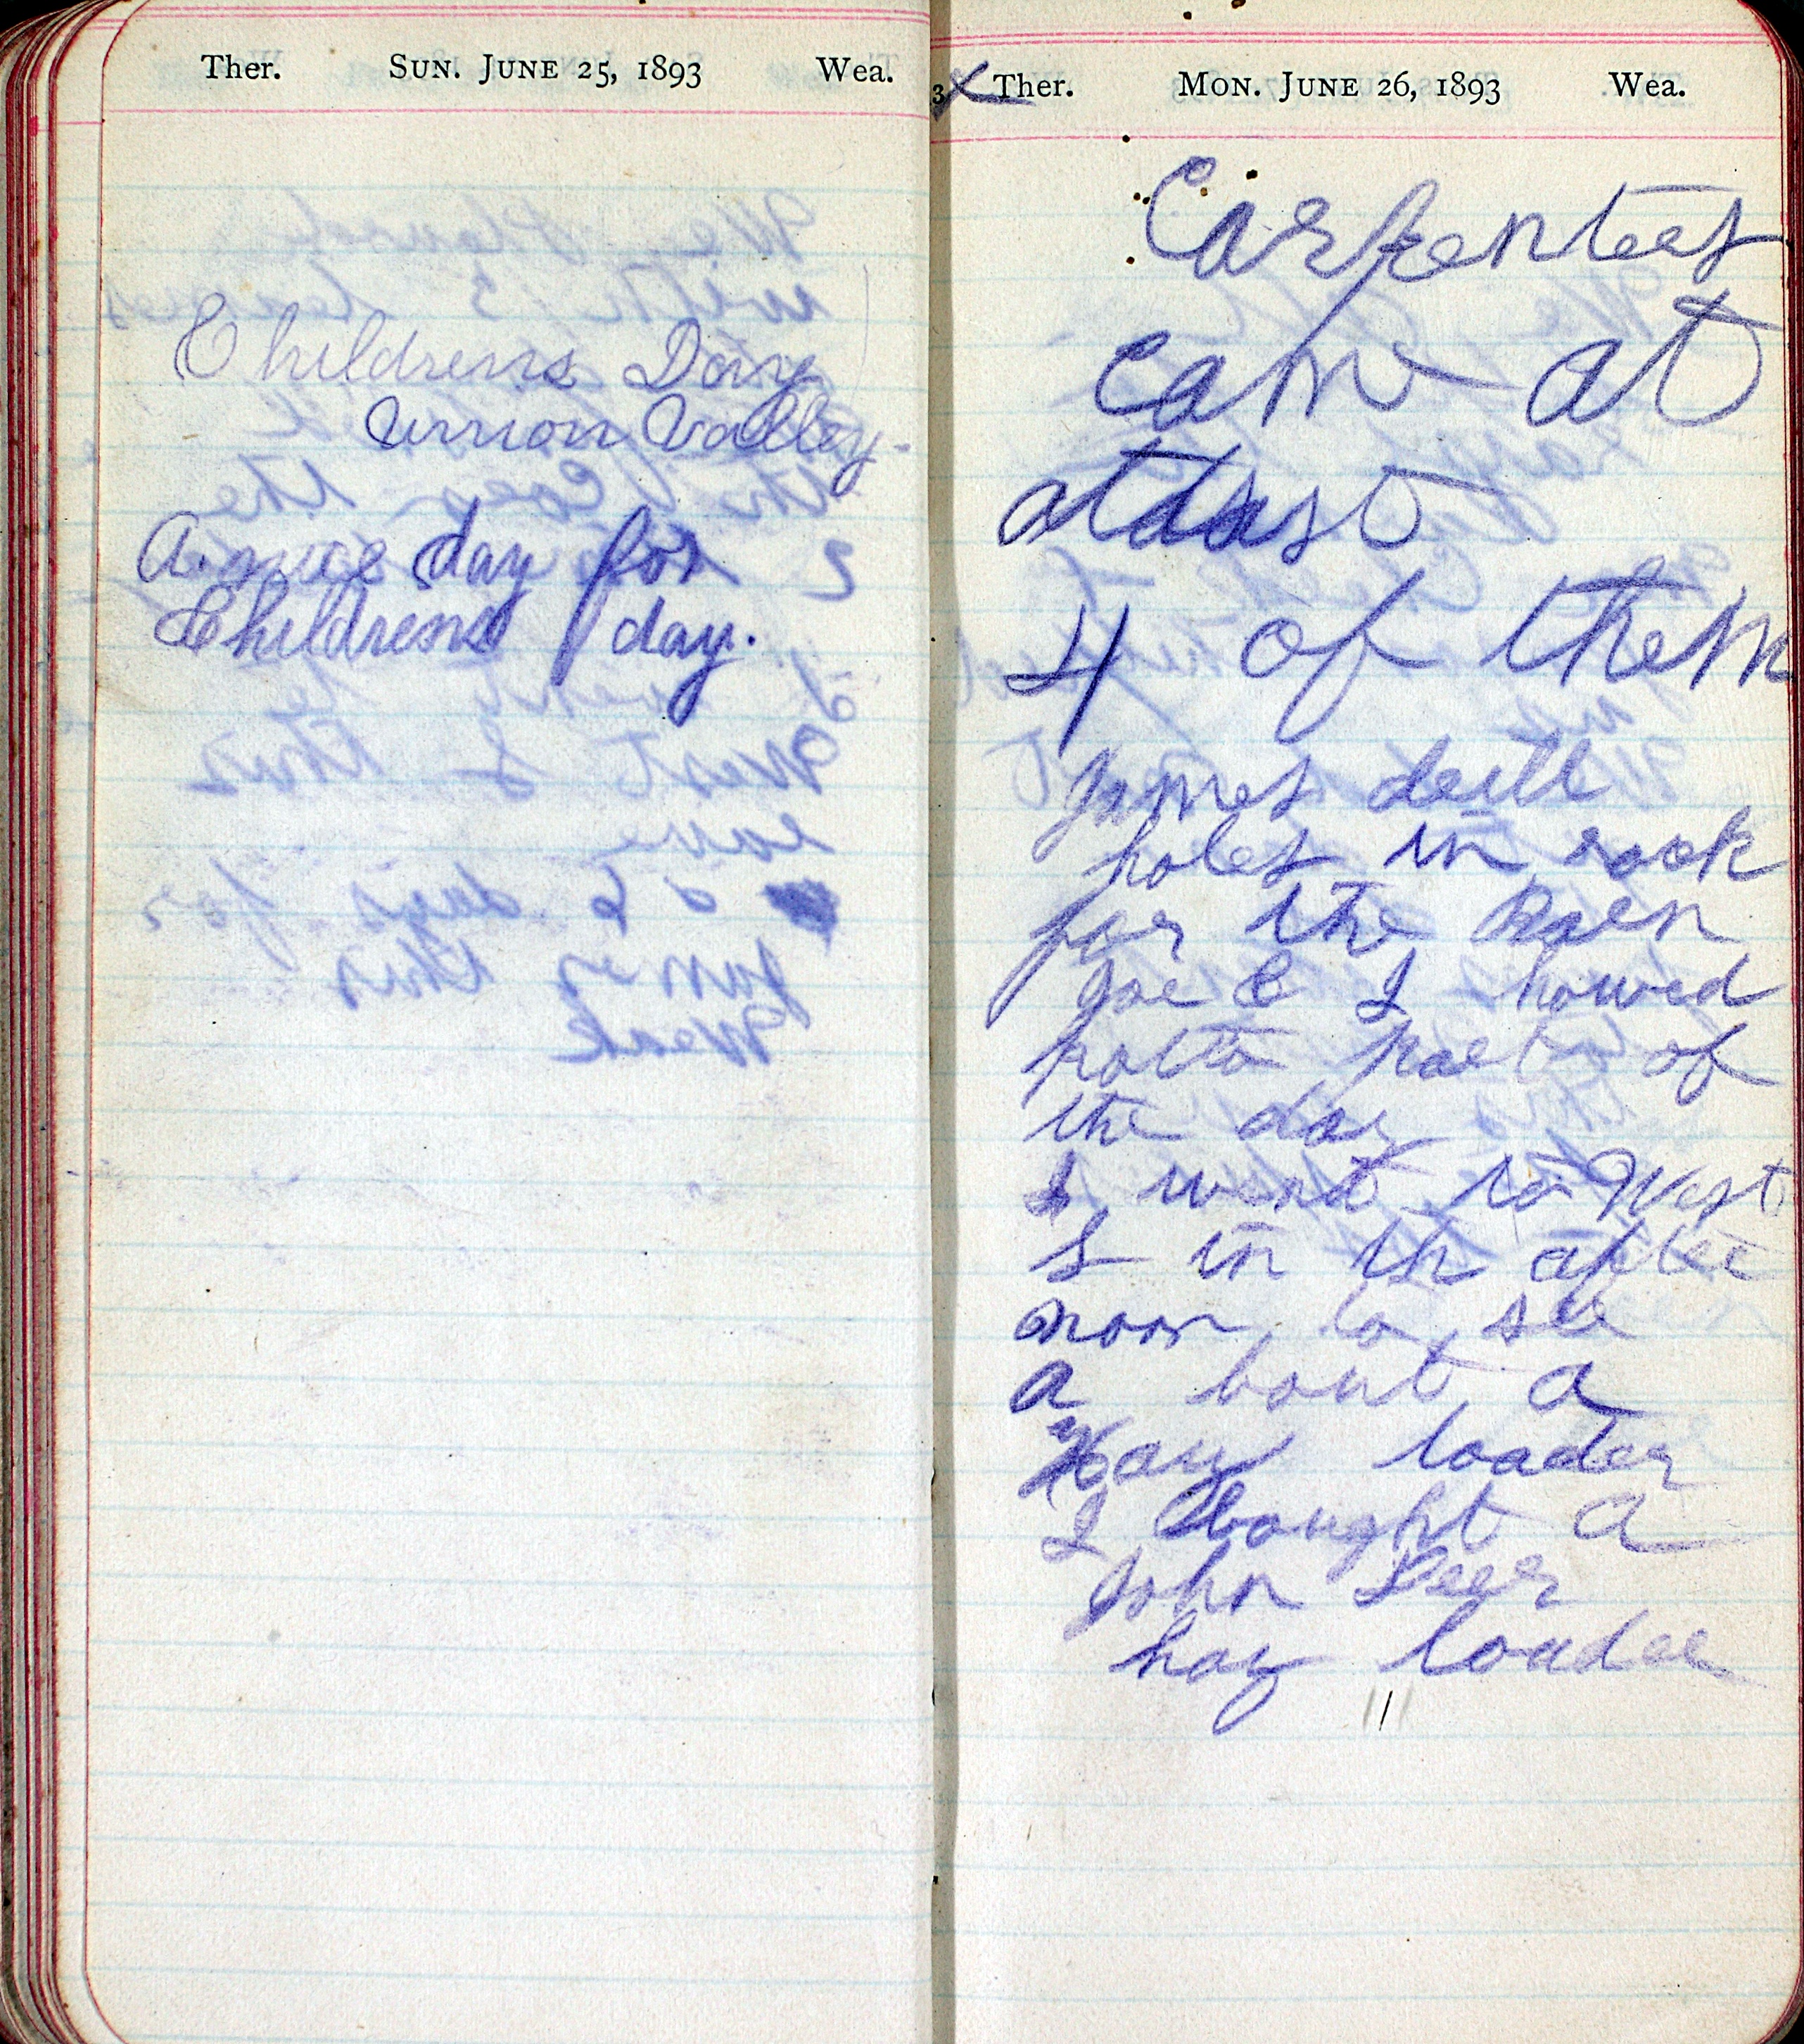 Ther. SUN. JUNE 25, 1893 Wea.
Childrens Day
Union Valley.
A nice day for
Childrens day.
Ther. MON. JUNE 26, 1893 Wea.
Carpenters
cam at
at last
4 of them
James drill
holes in rock
for the Barn
Joe & I howed
potto part of
the day
I went to West
S in th after
noon to see
a bout a
Hay loader
I bought a
John Deer
hay loader